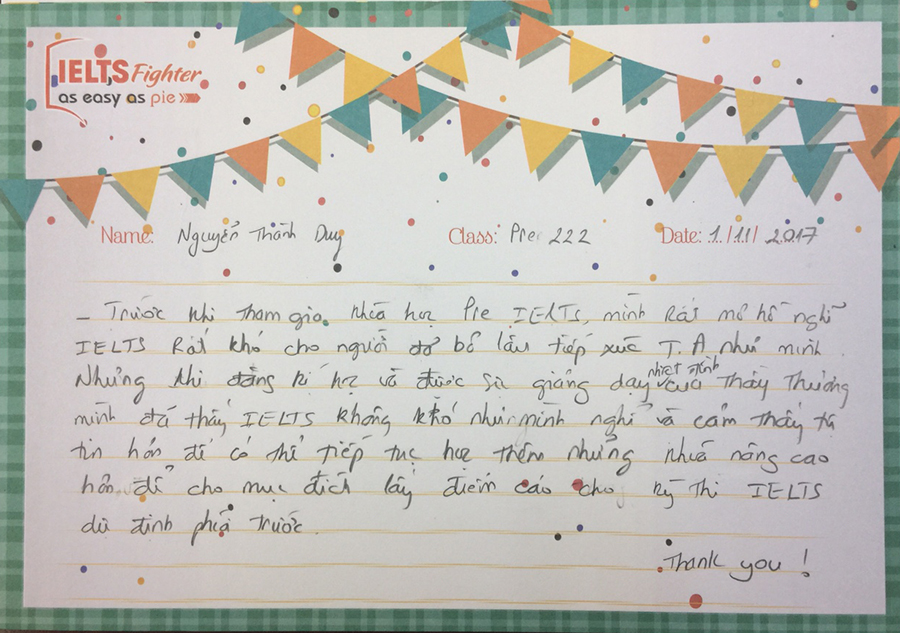 IELTS Fighter
as easy as pie
Name: Nguyễn Thành Duy Class: Pre 222 Date: 1/11/2017
- Trước khi tham gia khóa học Pre IELTS, mình rất mơ hồ nghĩ
IELTS Rất khó cho người bỏ lâu tiếp xúc T.A như mình.
Nhưng khi đăng kí học và được sự giảng dạy nhiệt tình của thầy Thương
mình đã thấy IELTS không khó như mình nghĩ và cảm thấy tự
tin hơn để có thể tiếp tục học thêm những khóa nâng cao
hơn để cho mục đích lấy điểm cao cho kỳ thi IELTS
dự định phía trước.
Thank you!